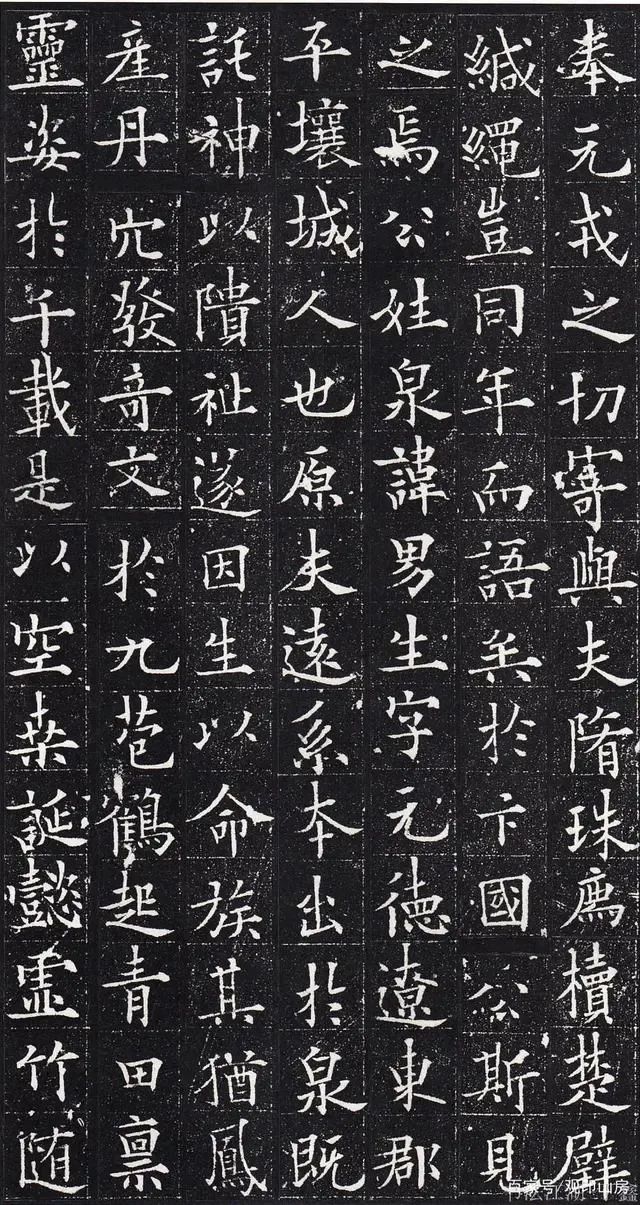 奉元戎之切寄與夫隋珠薦櫝楚璧
緘繩豈同年而語矣於卞國公斯見
之焉公姓泉諱男生字元德遼東郡
平壤城人也原夫遠系本出於泉既
託神以隤祉遂因生以命族其猶鳳
產丹穴發奇文於九苞鶴起青田稟
靈姿於千載是以空桑誕懿虛竹隨
百家号/观印山房